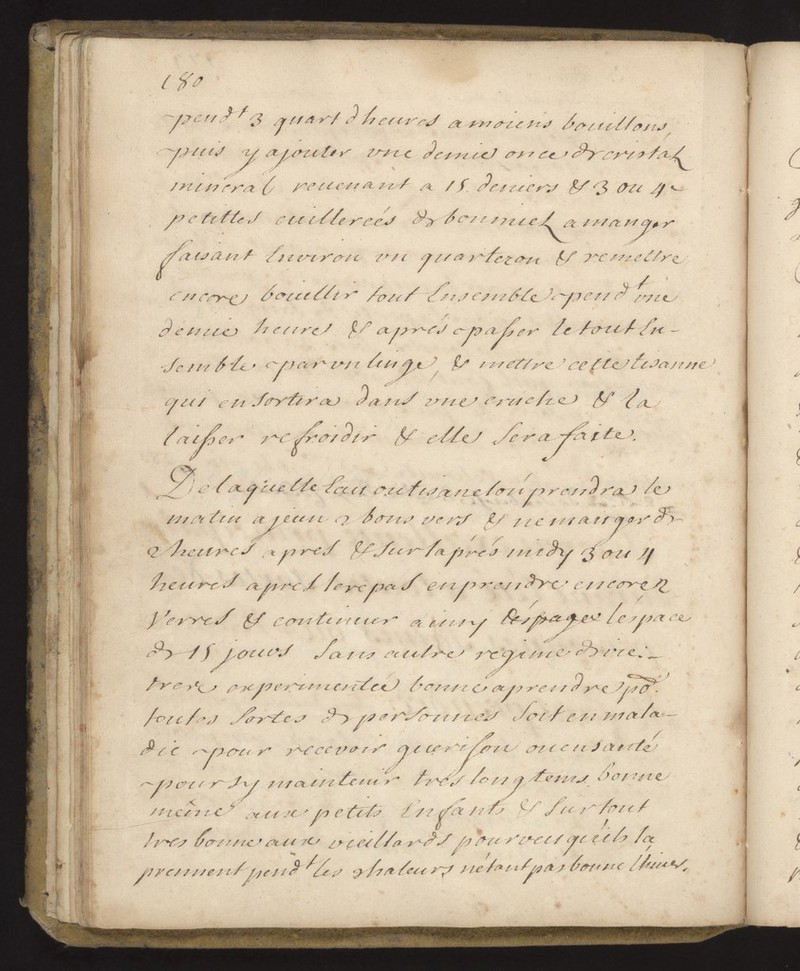 180
pend^t 3 quart dheures a moiens bouillons,
puis y ajouter vne demie once de cristal
mineral reuenant a 15 deniers & 3 ou 4
petittes cuillereés de bon miel a manger
faisant Enuiron vn quarteron & remettre
encore boüillir tout Ensemble pend^t vne
demie heure & aprés passer le tout En-
semble par vn linge, & mettre cette tisanne
qui en sortira dans vne cruche & la
laisser refroidir & elle sera faite.
De laquelle Eau ou tisane lon prendra le
matin a jeun 2 bons vers & ne manger de
2 heures apres & sur laprés midy 3 ou 4
heures apres le repas en prendre encore 2
Verres & continuer ainsy léspace
de 15 jours sans autre regime de vie:-
tres experimentée bonne a prendre po^r.
toutes sortes de personnes soit en mala-
die pour recevoir guerison ou en santé
pour sy maintenir tres long tems bonne
méme aux petits Enfants & sur tout
tres bonne aux vieillards pourveu quéils la
prennent pend^t les chaleurs nétant pas bonne Lhiuer.